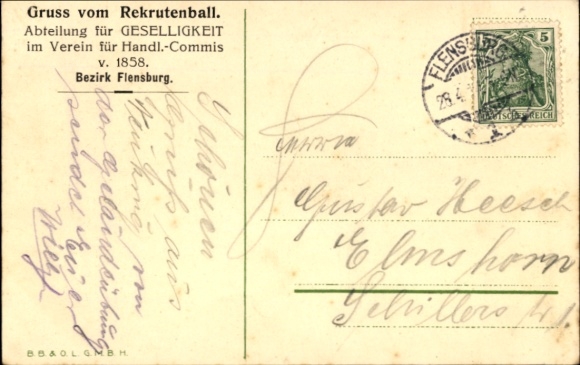 Gruss vom Rekrutenball.
Abteilung für GESELLIGKEIT
im Verein für Handl.-Commis
v. 1858.
Bezirk Flensburg.
Schönen
Gruß aus
von
der Geländeübung
sendet Euer
Willy
B.B.&O.L.G.M.B.H.
FLENSBURG
5
DEUTSCHES REICH
Herrn
Gustav Heesch
Elmshorn
Schillerstr.